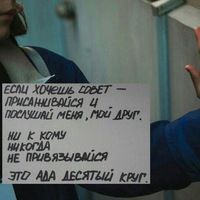 ЕСЛИ ХОЧЕШЬ СОВЕТ —
ПРИСАЖИВАЙСЯ И
ПОСЛУШАЙ МЕНЯ, МОЙ ДРУГ.
НИ К КОМУ
НИКОГДА
НЕ ПРИВЯЗЫВАЙСЯ
ЭТО АДА ДЕСЯТЫЙ КРУГ.